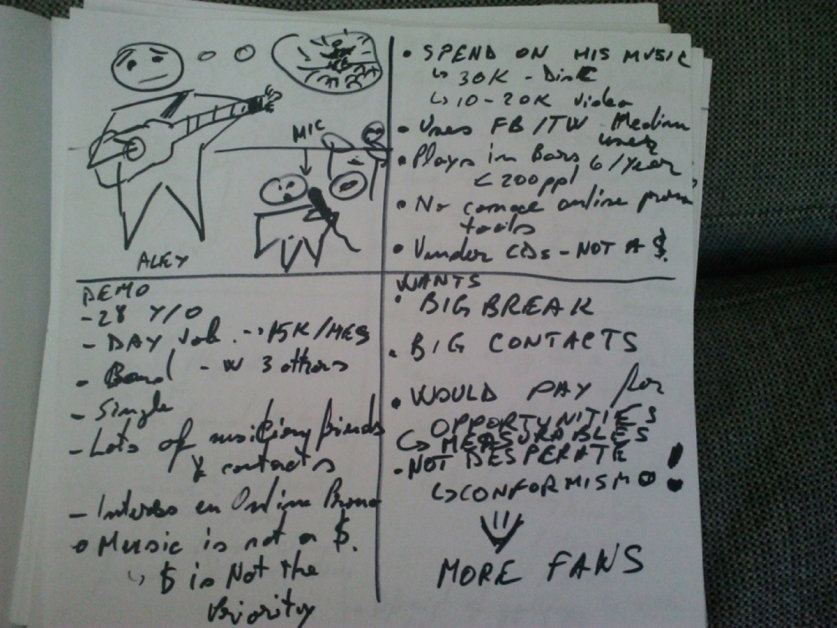 MIC
ALEX
• SPEND ON HIS MUSIC
↳ 30K - Disk
↳ 10-20K Video
• Uses FB/TW - Medium
user
• Plays in Bars 6/Year
< 200ppl
• No conoce online promo
tools
• CDs - NOT A $
DEMO
- 28 Y/O
- DAY Job --> 15K/MES
- Band - w 3 others
- Single
- Lots of musician friends
& contacts
- Interes en Online Promo
• Music is not a $.
↳ $ is Not the
Priority
WANTS
• BIG BREAK
• BIG CONTACTS
• WOULD PAY for
OPPORTUNITIES
↳ MEASURABLES
- NOT DESPERATE !
↳ CONFORMISMO!
MORE FANS